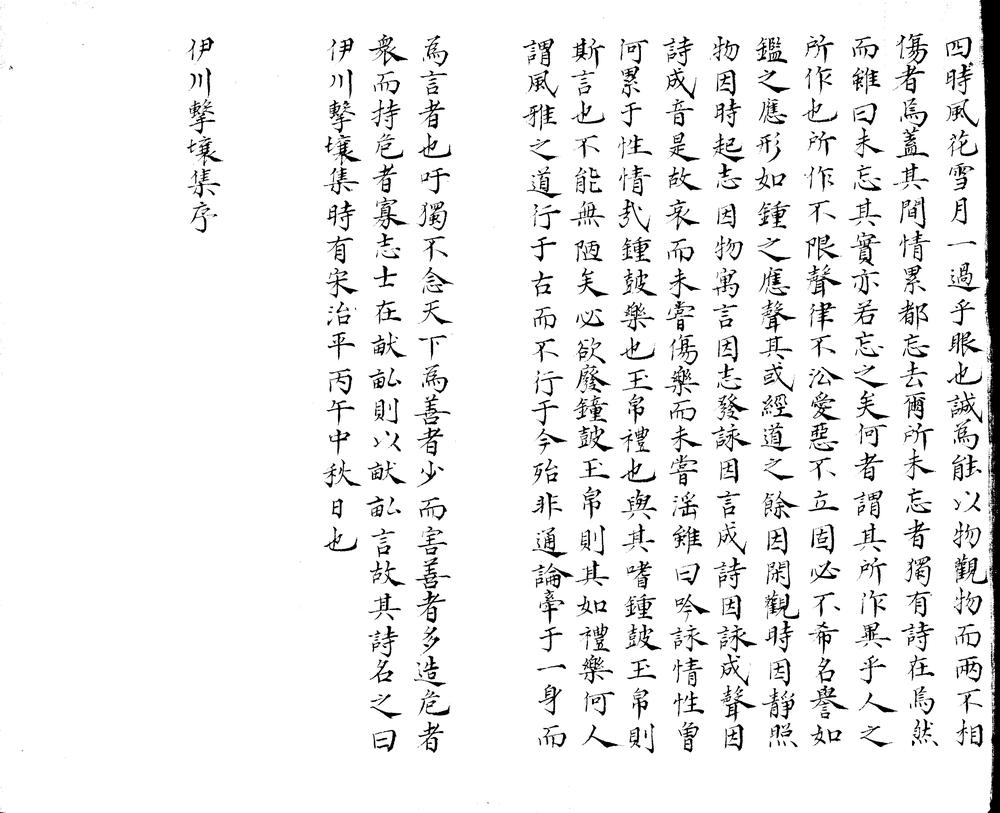 四時風花雪月一過乎眼也誠為能以物觀物而兩不相
傷者焉蓋其間情累都忘去爾所未忘者獨有詩在焉然
而雖曰未忘其實亦若忘之矣何者謂其所作異乎人之
所作也所作不限聲律不沿愛惡不立固必不希名譽如
鑑之應形如鍾之應聲其或經道之餘因閑觀時因靜照
物因時起志因物寓言因志發詠因言成詩因詠成聲因
詩成音是故哀而未嘗傷樂而未嘗滛雖曰吟詠情性曾
何累于性情㢤鍾皷樂也玉帛禮也與其嗜鍾皷玉帛則
斯言也不能無陋矣必欲廢鐘皷玉帛則其如禮樂何人
謂風雅之道行于古而不行于今殆非通論牽于一身而
為言者也吁獨不念天下為善者少而害善者多造危者
衆而持危者寡志士在畎畝則以畎畝言故其詩名之曰
伊川擊壤集時有宋治平丙午中秋日也
伊川擊壤集序